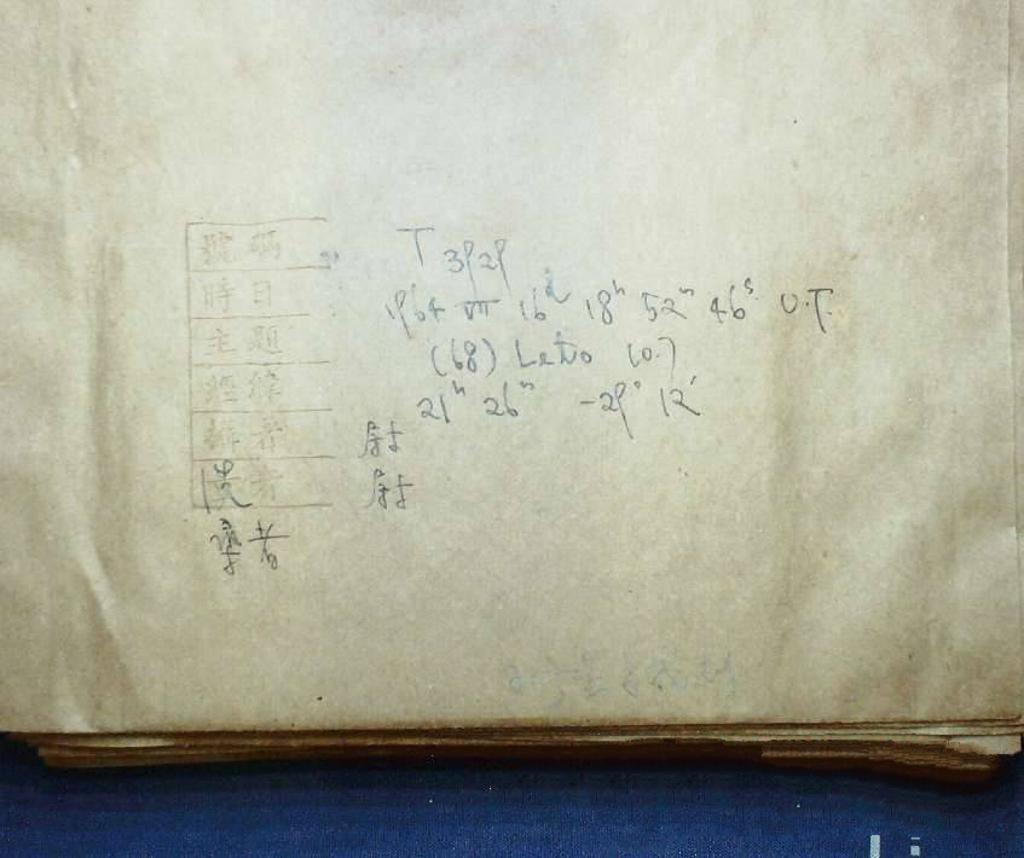 號碼 T 3929
時日 1964 VII 16d 18h 52m 46s U.T.
主題 (68) Leto (0.)
經緯 21h 26m -29° 12'
者 尉
者 尉
者